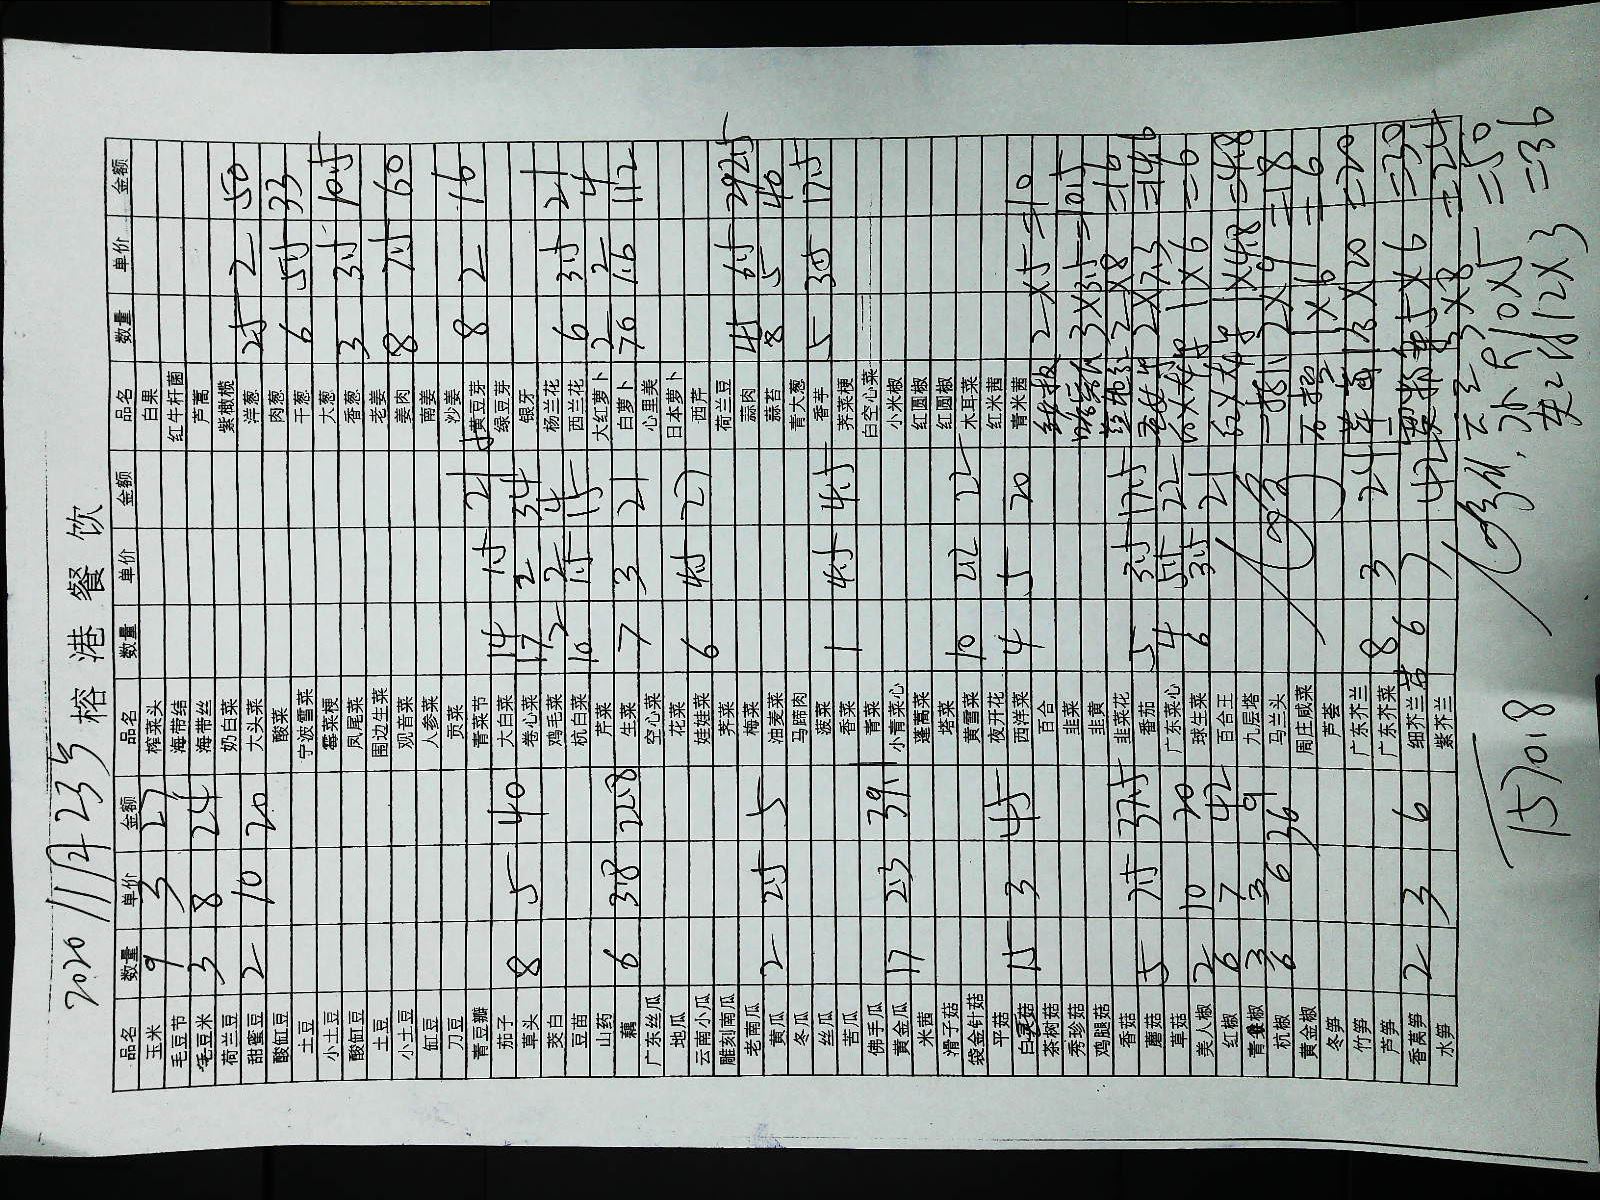 2020 11月23号 榕港餐饮
品名 数量 单价 金额 品名 数量 单价 金额 品名 数量 单价 金额
玉米 9 3 27 榨菜头 白果
毛豆节 海带结 红牛杆菌
毛豆米 3 8 24 海带丝 芦蒿
荷兰豆 奶白菜 紫橄榄
甜蜜豆 2 10 20 大头菜 洋葱 25 2 50
酸缸豆 酸菜 肉葱
土豆 宁波雪菜 干葱 6 5.5 33
小土豆 霉菜梗 大葱
酸缸豆 凤尾菜 香葱 3 3.5 10.5
土豆 围边生菜 老姜
小土豆 观音菜 姜肉 8 7.5 60
缸豆 人参菜 南姜
刀豆 贡菜 沙姜
青豆瓣 青菜节 黄豆芽 8 2 16
茄子 大白菜 14 1.5 21 绿豆芽
草头 8 5 40 卷心菜 17 2 34 银牙
茭白 鸡毛菜 2 2 4 杨兰花
豆苗 杭白菜 10 1.5 15 西兰花 6 3.5 21
山药 芹菜 大红萝卜 2 2 4
藕 6 3.8 22.8 生菜 7 3 21 白萝卜 70 1.6 112
广东丝瓜 空心菜 心里美
地瓜 花菜 日本萝卜
云南小瓜 娃娃菜 6 4.5 27 西芹
雕刻南瓜 荠菜 荷兰豆
老南瓜 梅菜 蒜肉 45 6.5 292.5
黄瓜 2 2.5 5 油麦菜 蒜苔 8 5 40
冬瓜 马蹄肉 青大葱
丝瓜 菠菜 香芋 5 3.5 17.5
苦瓜 香菜 1 4.5 4.5 荠菜梗
佛手瓜 青菜 白空心菜
黄金瓜 17 2.3 39.1 小青菜心 小米椒
米茜 蓬蒿菜 红圆椒
滑子菇 塔菜 红圆椒
袋金针菇 黄雪菜 10 2.2 22 木耳菜
平菇 夜开花 红米茜
白灵菇 15 3 45 西洋菜 4 5 20 青米茜
茶树菇 百合 2X5=10
秀珍菇 韭菜 3X3.5=10.5
鸡腿菇 韭黄 2X8=16
香菇 韭菜花 2X7.3=14.6
蘑菇 5 7.5 37.5 番茄 5 3.5 17.5
草菇 广东菜心 4 5.5 22 1X6=6
美人椒 2 10 20 球生菜 6 3.5 21
红椒 6 7 42 百合王 1X48=48
3 3 9 九层塔 2X9=18
杭椒 6 6 36 马兰头
黄金椒 周庄咸菜 1X6=6
冬笋 芦荟
竹笋 广东芥兰 1X20=20
芦笋 广东芥菜 8 3 24
香莴笋 2 3 6 细芥兰苗 6 7 42 5X6=30
水笋 紫芥兰 3X8=24
10X5=50
12X3=36
1570.8